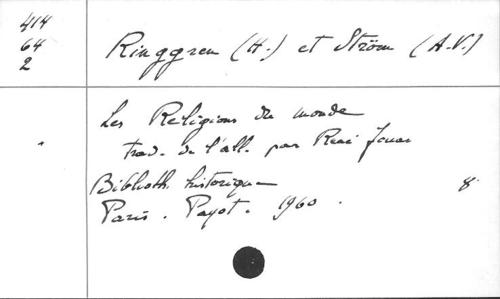 414
64
2
Ringgren (H.) et Ström (A.V.)
Les Religions du monde
trad. de l'all. par René Jouan
Biblioth. historique
8°
Paris. Payot. 1960.